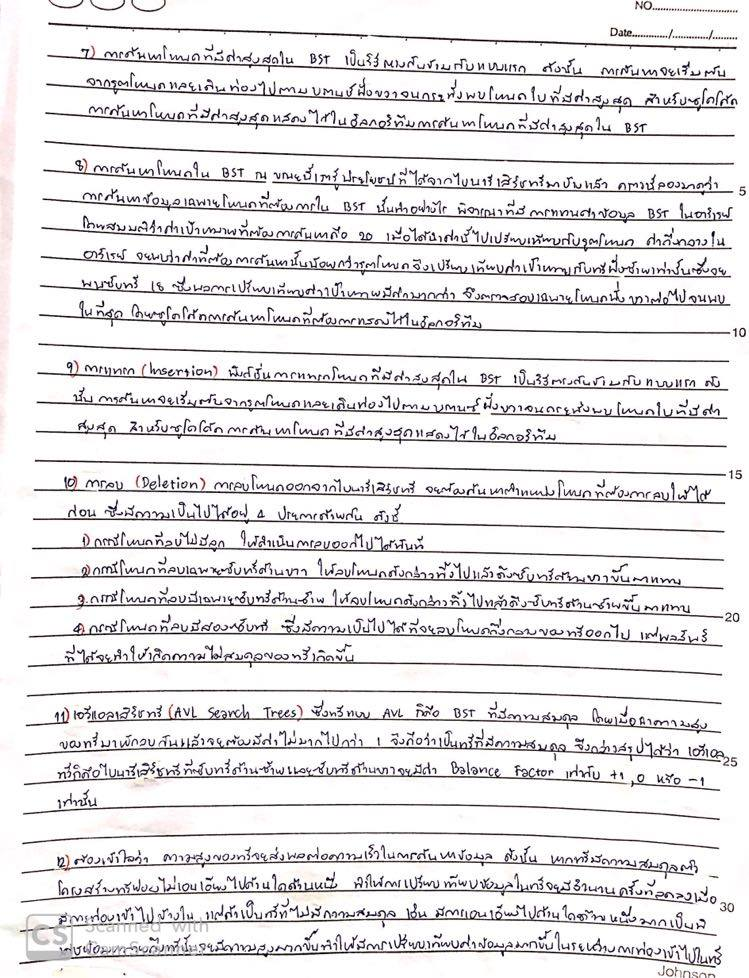 NO.
Date
7) การค้นหาโหนดที่มีค่าสูงสุดใน BST เป็นวิธีตรงกันข้ามกับแบบแรก ดังนั้น การค้นหาจะเริ่มต้น
จากรูตโหนดและเดินท่องไปตามบรานช์ฝั่งขวาจนกระทั่งพบโหนดใบที่มีค่าสูงสุด สำหรับซูโดโค้ด
การค้นหาโหนดที่มีค่าสูงสุดแสดงไว้ในอัลกอริทึมการค้นหาโหนดที่มีค่าสูงสุดใน BST
8) การค้นหาโหนดใน BST ณ ขณะนี้เรารู้ประโยชน์ที่ได้จากไบนารีเสิร์ชทรีมาบ้างแล้ว คราวนี้ลองมาดูว่า
5
การค้นหาข้อมูลเฉพาะโหนดที่ต้องการใน BST นั้นทำอย่างไร พิจารณาที่มีการแทนค่าข้อมูล BST ในอาร์เรย์
โดยสมมติว่าค่าเป้าหมายที่ต้องการค้นหาคือ 20 เมื่อได้นำค่านี้ไปเปรียบเทียบกับรูตโหนด ค่ากึ่งกลางใน
อาร์เรย์ จะพบว่าค่าที่ต้องการค้นหานั้นน้อยกว่ารูตโหนด จึงเปรียบเทียบค่าเป้าหมายกับทรีฝั่งซ้ายเท่านั้นซึ่งจะ
พบซับทรี 18 ซึ่งผลการเปรียบเทียบค่าเป้าหมายมีค่ามากกว่า จึงตรวจสอบเฉพาะโหนดนั้น หาต่อไปจนพบ
ในที่สุด โดยซูโดโค้ดการค้นหาโหนดที่ต้องการแสดงไว้ในอัลกอริทึม
10
9) การแทรก (Insertion) ฟังก์ชั่นการแทรกโหนดที่มีค่าสูงสุดใน BST เป็นวิธีตรงกันข้ามกับแบบแรก ดัง
นั้น การค้นหาจะเริ่มต้นจากรูตโหนดและเดินท่องไปตามบรานช์ฝั่งขวาจนกระทั่งพบโหนดใบที่มีค่า
สูงสุด สำหรับซูโดโค้ดการค้นหาโหนดที่มีค่าสูงสุดแสดงไว้ในอัลกอริทึม
15
10) การลบ (Deletion) การลบโหนดออกจากไบนารีเสิร์ชทรี จะต้องค้นหาตำแหน่งโหนดที่ต้องการลบให้ได้
ก่อน ซึ่งมีความเป็นไปได้อยู่ 4 ประการด้วยกัน ดังนี้
1) กรณีโหนดที่ลบไม่มีลูก ให้ดำเนินการลบออกไปได้ทันที
2) กรณีโหนดที่ลบเฉพาะซับทรีด้านขวา ให้ลบโหนดดังกล่าวทิ้งไปแล้วดึงซับทรีด้านขวาขึ้นมาแทน
3. กรณีโหนดที่ลบมีเฉพาะซับทรีด้านซ้าย ให้ลบโหนดดังกล่าวทิ้งไปแล้วดึงซับทรีด้านซ้ายขึ้นมาแทน
20
4) กรณีโหนดที่ลบมีสองซับทรี ซึ่งมีความเป็นไปได้ที่จะลบโหนดกึ่งกลางของทรีออกไป แต่ผลลัพธ์
ที่ได้จะทำให้เกิดความไม่สมดุลของทรีเกิดขึ้น
11) เอวีแอลเสิร์ชทรี (AVL Search Trees) ซึ่งทรีแบบ AVL ก็คือ BST ที่มีความสมดุล โดยเมื่อเอาความสูง
ของทรีมาหักลบกันแล้วจะต้องมีค่าไม่มากไปกว่า 1 จึงถือว่าเป็นทรีที่มีความสมดุล ซึ่งกล่าวสรุปได้ว่า เอวีแอล
25
ทรีก็คือไบนารีเสิร์ชทรีที่ซับทรีด้านซ้ายและซับทรีด้านขวาจะมีค่า Balance Factor เท่ากับ +1, 0 หรือ -1
เท่านั้น
12) ต้องเข้าใจว่า ความสูงของทรีจะส่งผลต่อความเร็วในการค้นหาข้อมูล ดังนั้น หากทรีมีความสมดุลตัว
โครงสร้างทรีย่อมไม่เอนเอียงไปด้านใดด้านหนึ่ง ทำให้การเปรียบเทียบข้อมูลในทรีจะมีจำนวนครั้งที่ลดลงเมื่อ
มีการท่องเข้าไปข้างใน แต่ถ้าเป็นทรีที่ไม่มีความสมดุล เช่น มีการเอนเอียงไปด้านใดด้านหนึ่งมากเป็นพิ
30
เศษย่อมหมายถึงทรีนั้นจะมีความสูงมากขึ้นทำให้มีการเปรียบเทียบค่าข้อมูลมากขึ้นในระหว่างการท่องเข้าไปในทรี
CS Scanned with
CamScanner
Johnson